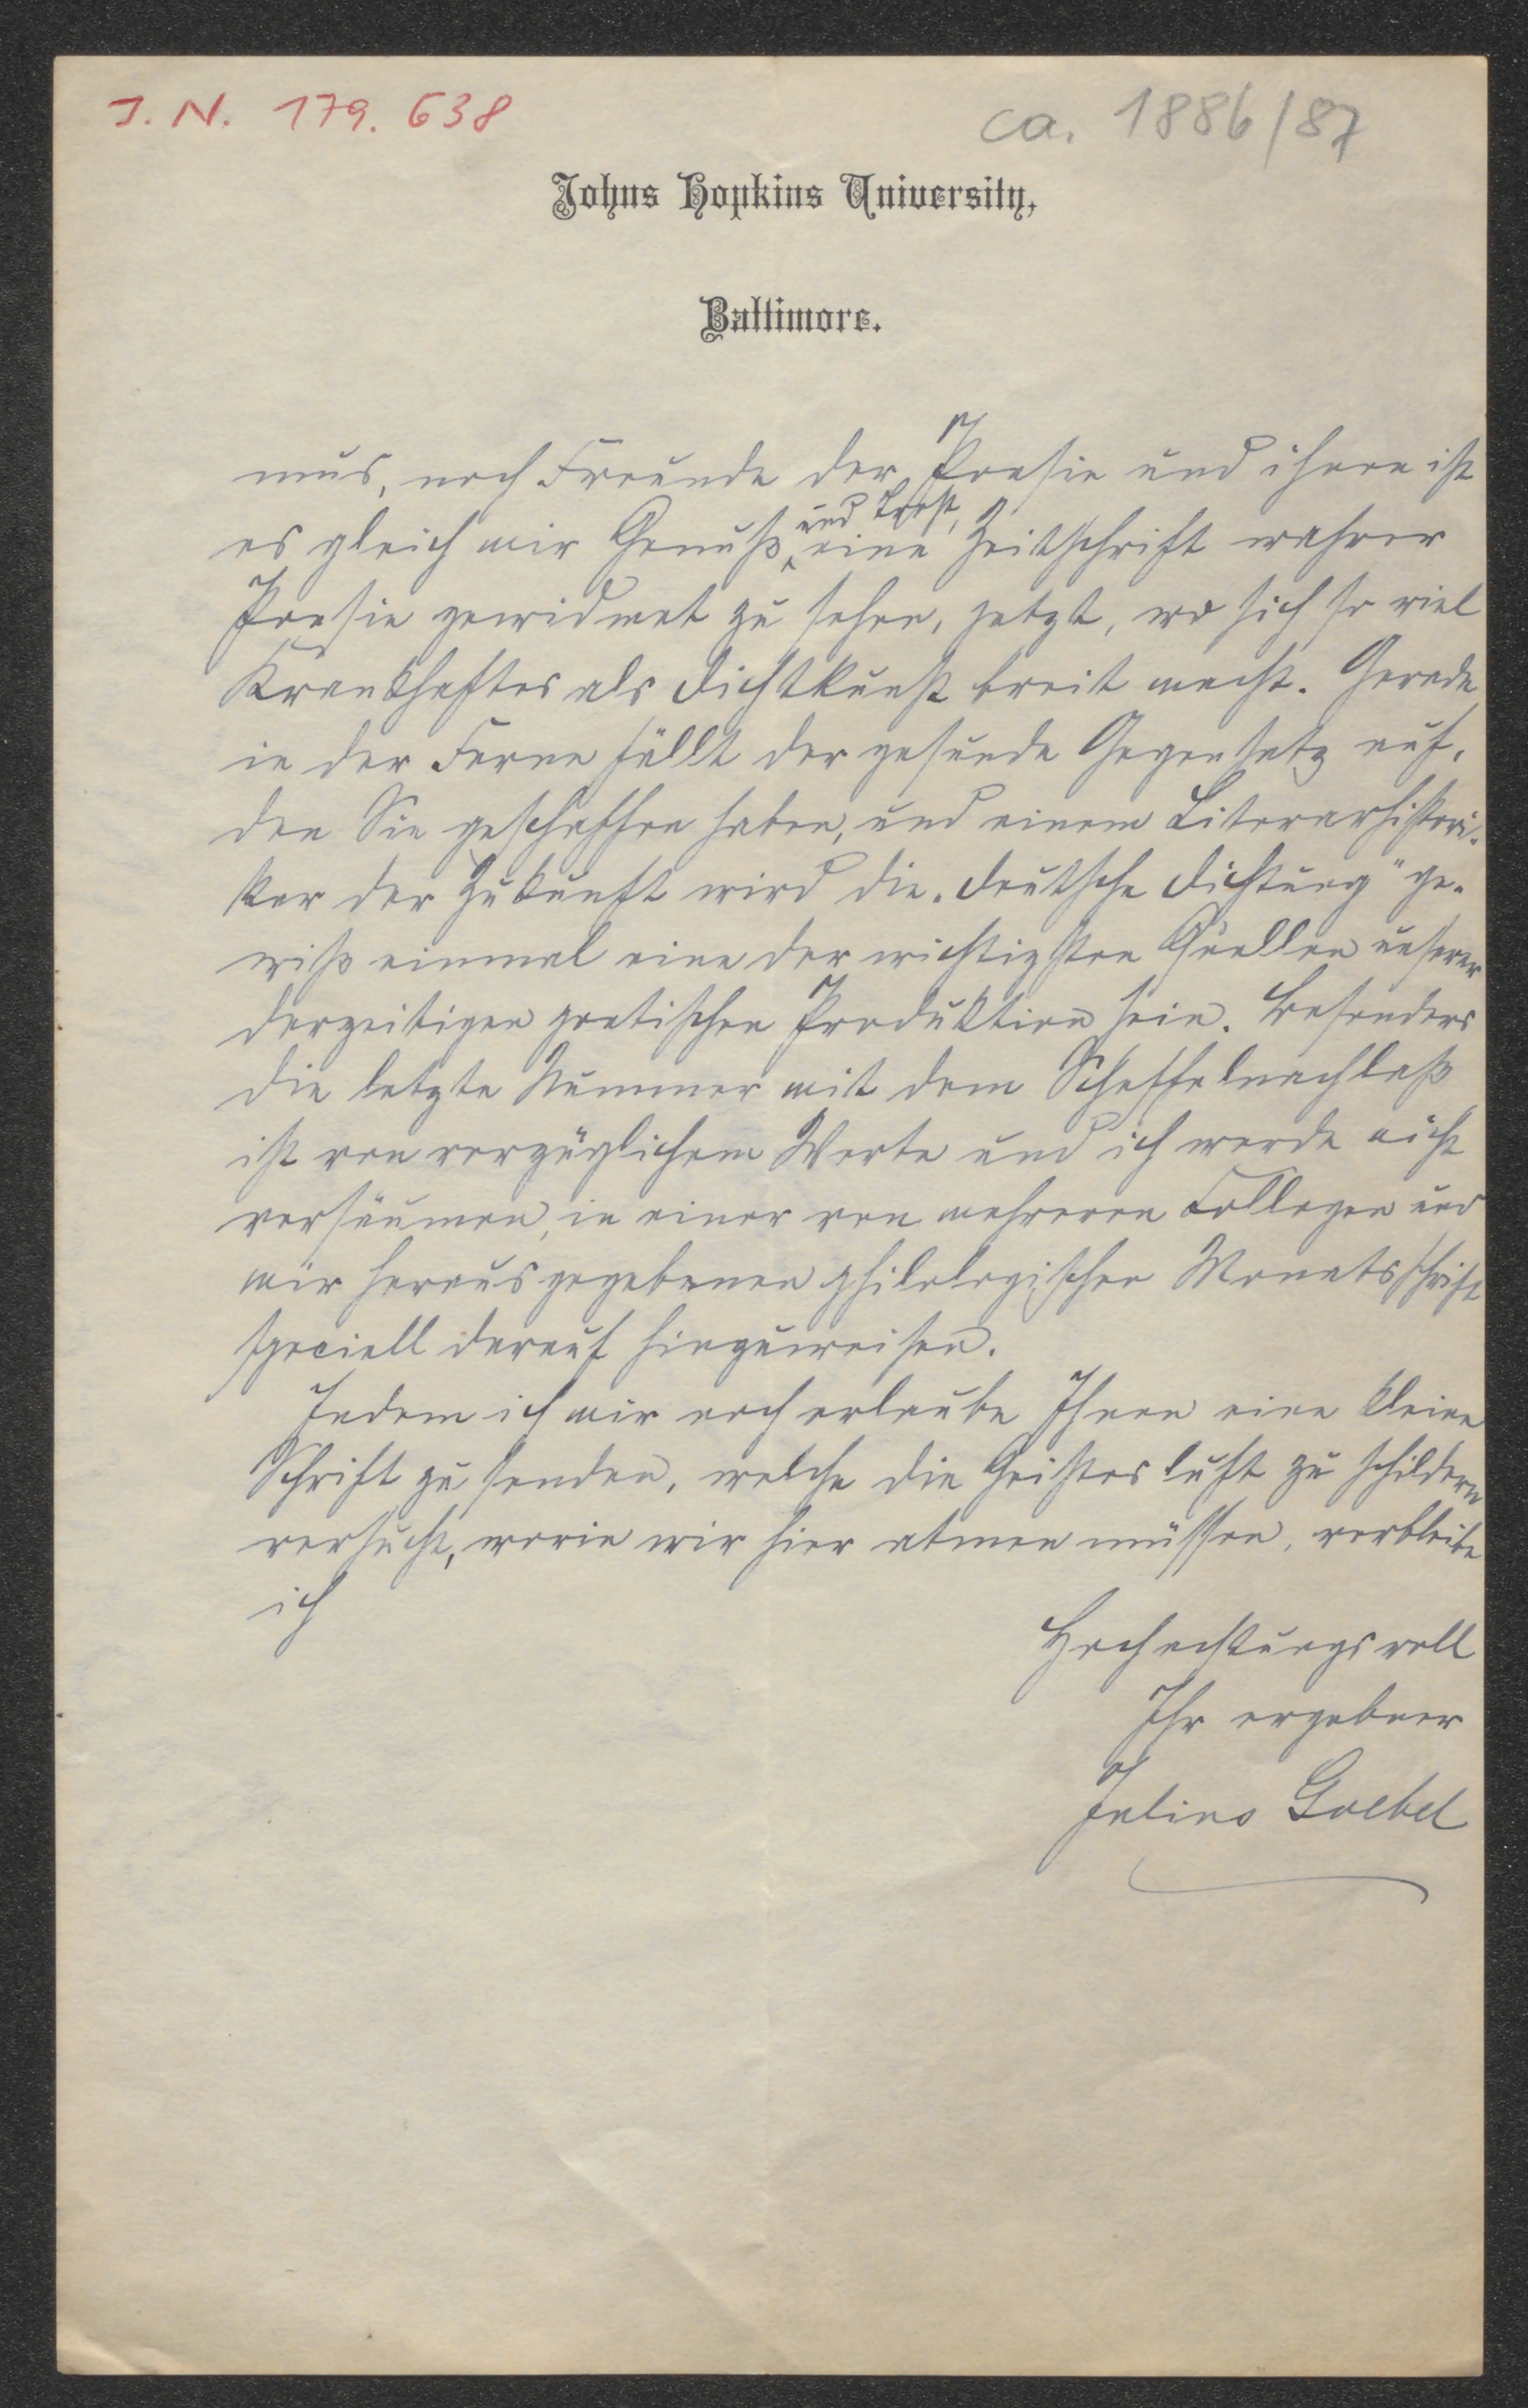 J. N. 179.638
ca. 1886/87
Johns Hopkins University,
Baltimore.
mus, noch Freunde der Poesie und ihnen ist
und Trost,
es gleich mir Genuß, eine Zeitschrift wahrer
Poesie gewidmet zu sehen, jetzt, wo sich so viel
Krankhaftes als Dichtkunst breit macht. Gerade
in der Ferne fällt der gesunde Gegensatz auf,
den Sie geschaffen haben, und einem Literarhistori-
ker der Zukunft wird die „Deutsche Dichtung" ge-
wiß einmal eine der wichtigsten Quellen unserer
derzeitigen poetischen Produktion sein. Besonders
die letzte Nummer mit dem Scheffelnachlaß
ist von vorzüglichem Werte und ich werde nicht
versäumen, in einer von mehreren Collegen und
mir herausgegebenen philologischen Monatsschrift
speciell darauf hinzuweisen.
Indem ich mir noch erlaube Ihnen eine kleine
Schrift zu senden, welche die Geistesluft zu schildern
versucht, worin wir hier atmen müssen, verbleibe
ich
Hochachtungsvoll
Ihr ergebner
Julius Goebel